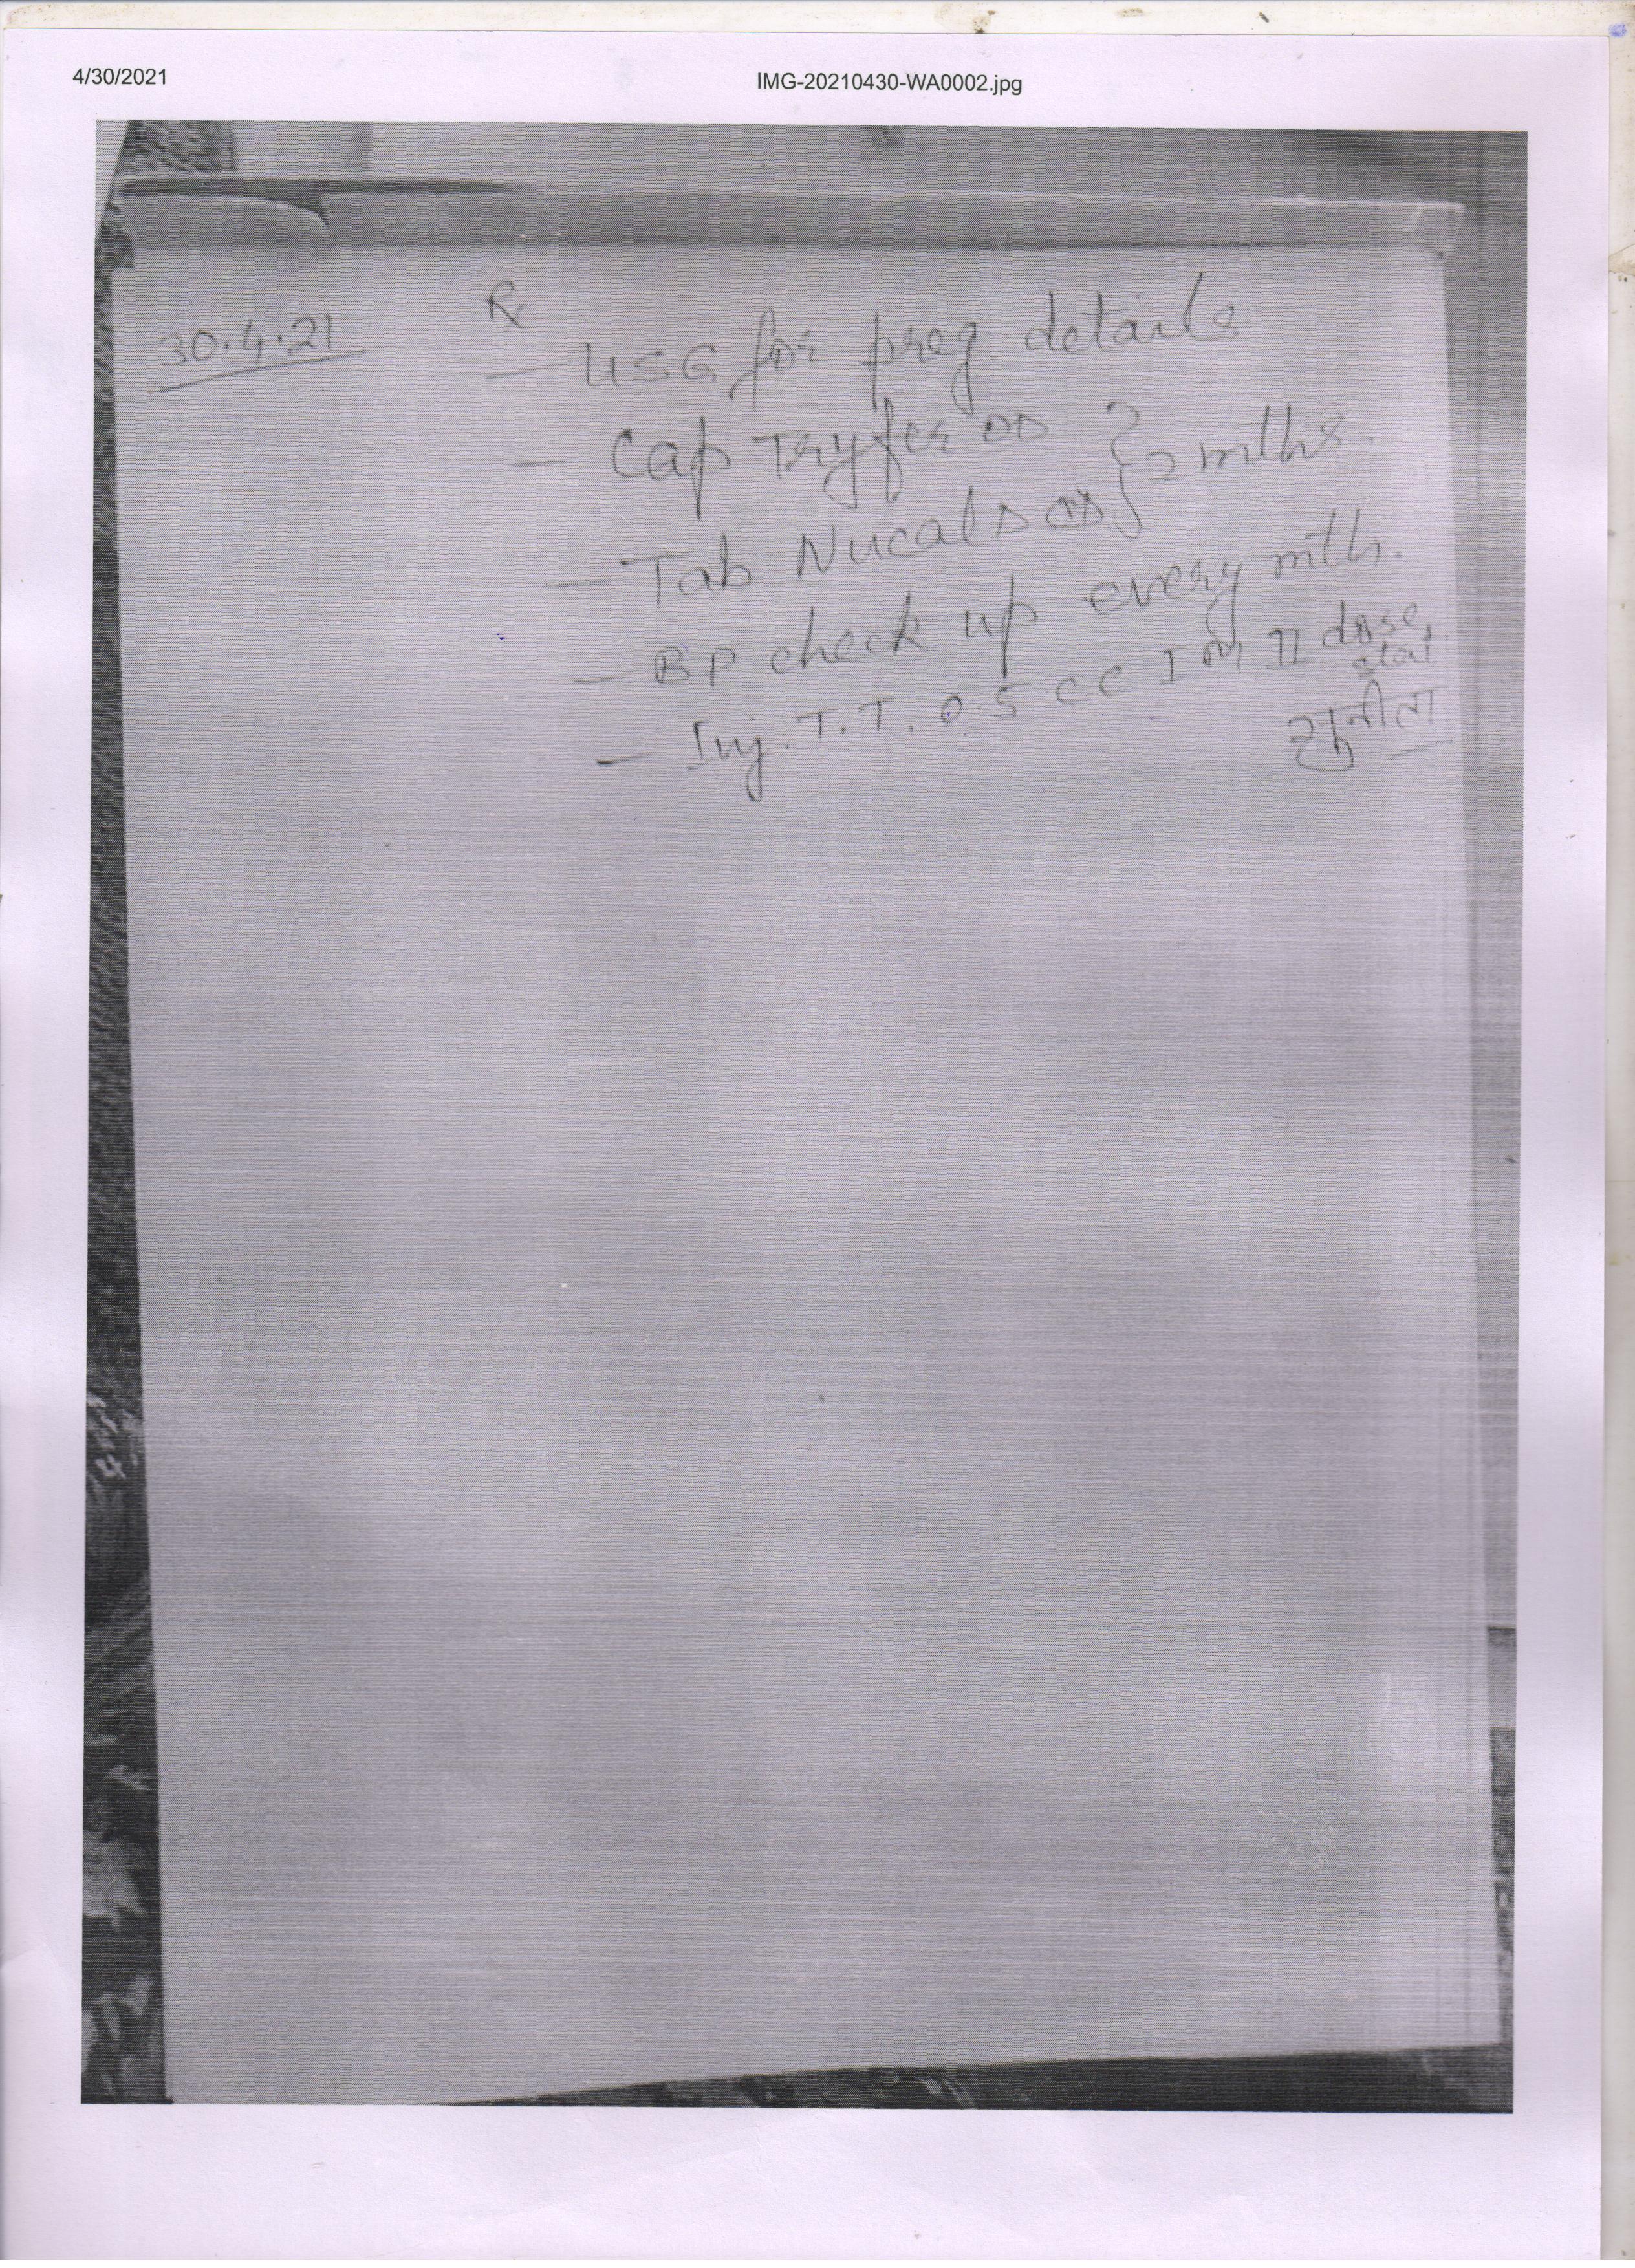 4/30/2021 IMG-20210430-WA0002.jpg
30.4.21 Rx
- USG for preg. details
- Cap Tryfer OD } 2 mths.
- Tab Nucal D OD }
- BP check up every mth.
- Inj. T.T. 0.5 CC I or II dose,
stat
सुनीता